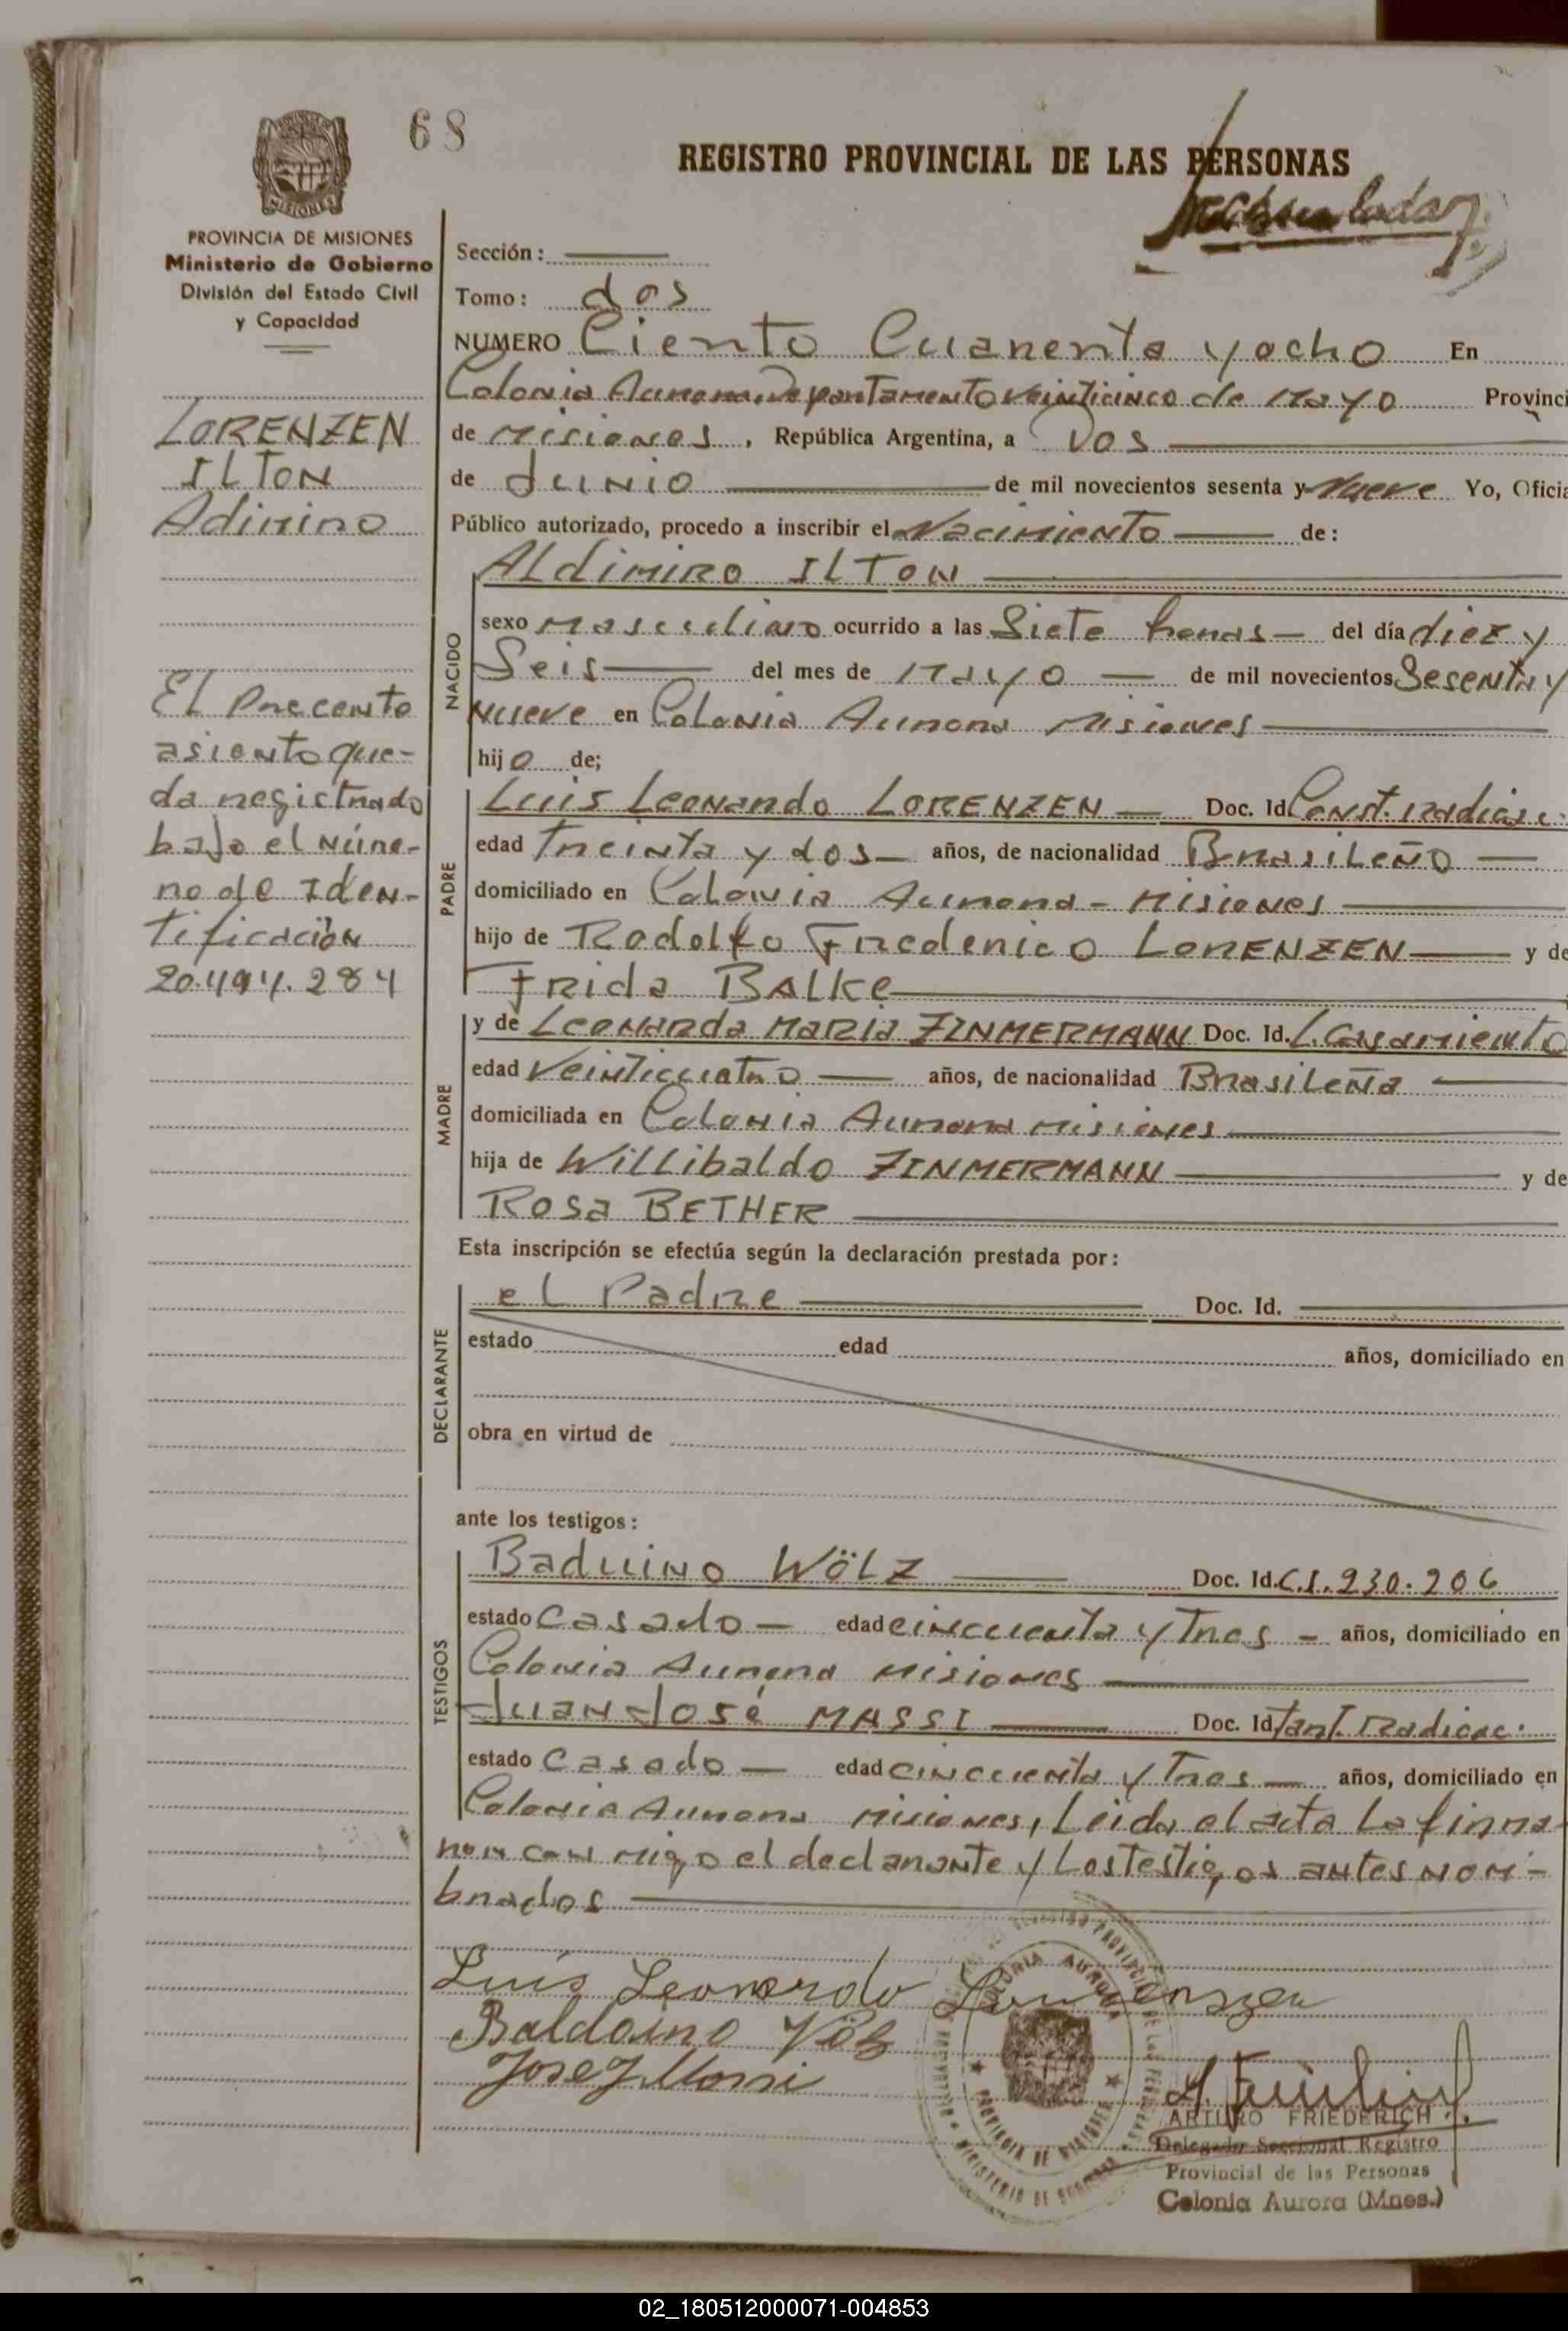 68
REGISTRO PROVINCIAL DE LAS PERSONAS
PROVINCIA DE MISIONES
Ministerio de Gobierno
División del Estado Civil
y Capacidad
LORENZEN
ILTON
Adimiro
El Precente
asiento que-
da registrado
bajo el Núme-
ro de Iden-
tificación
20.494.284
Sección:
Tomo: dos
NUMERO Ciento Cuarenta y ocho En
Colonia Aurora, Departamento Veinticinco de Mayo Provinci
de Misiones, República Argentina, a Dos
de Junio de mil novecientos sesenta y Nueve Yo, Oficia
Público autorizado, procedo a inscribir el Nacimiento de:
NACIDO
Aldimiro ILTON
sexo Masculino ocurrido a las Siete horas del día diez y
Seis del mes de Mayo de mil novecientos Sesenta y
Nueve en Colonia Aurora Misiones
hijo de;
PADRE
Luis Leonardo LORENZEN Doc. Id. Const. Radicac.
edad Treinta y dos años, de nacionalidad Brasileño
domiciliado en Colonia Aurora - Misiones
hijo de Rodolfo Frederico LORENZEN y de
Frida BALKe
MADRE
y de Leonarda MARIA ZINMERMANN Doc. Id. L. Casamiento
edad Veinticuatro años, de nacionalidad Brasileña
domiciliada en Colonia Aurora Misiones
hija de Willibaldo ZINMERMANN y de
Rosa BETHER
Esta inscripción se efectúa según la declaración prestada por:
DECLARANTE
el Padre Doc. Id.
estado edad años, domiciliado en
obra en virtud de
ante los testigos:
TESTIGOS
Baduino WÖLZ Doc. Id. C.I. 930.206
estado Casado edad cincuenta y Tres años, domiciliado en
Colonia Aurora Misiones
Juan José MASSI Doc. Id. Const. Radicac.
estado Casado edad cincuenta y Tres años, domiciliado en
Colonia Aurora Misiones, Leida el acta La firma
ron con migo el declarante y Los testigos antes nom-
brados
Luis Leonardo Lorenzen
Baldoino Völz
Jose J. Massi
ARTURO FRIEDERICH
Delegado Seccional Registro
Provincial de las Personas
Colonia Aurora (Mnes.)
02_180512000071-004853